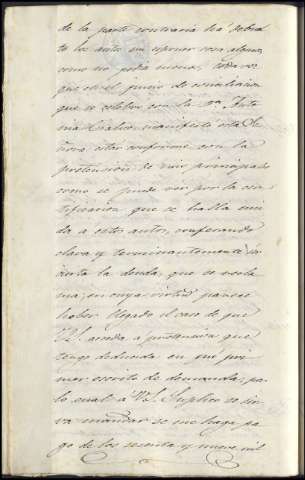 de la parte contraria ha devuel
to los autos sin esponer cosa alguna,
como no podia menos, toda vez
que en el juicio de conciliacion
que se celebró con la Sra. Anto
nia manifestó este Se
ñor estar conforme con la
pretension de mi principado
como se puede ver por la cer
tificacion que se halla uni
da a estos autos, confesando
clara y terminantemente
cierta la deuda, que se recla
ma; en cuya virtud parece
haber llegado el caso de que
V.S. acceda a pretension que
tengo deducida en mi pri
mer escrito de demanda; por
lo cual á V.S. Suplico se sir
va mandar se me haga pa
go de los sesenta y nueve mil